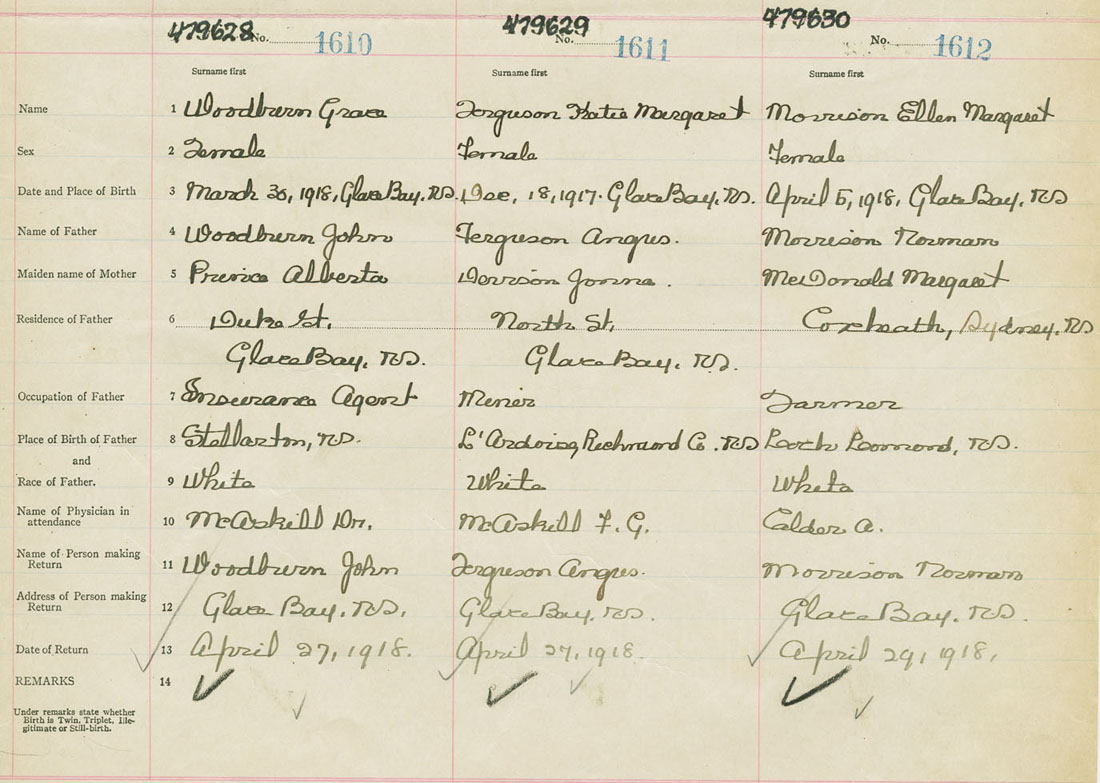 479628 479629 479630
No. 1610 No. 1611 No. 1612
Surname first Surname first Surname first
Name 1 Woodburn Grace Ferguson Katie Margaret Morrison Ellen Margaret
Sex 2 Female Female Female
Date and Place of Birth 3 March 30, 1918, Glace Bay, N.S. Dec, 18, 1917. Glace Bay, N.S. April 5, 1918, Glace Bay, N.S
Name of Father 4 Woodburn John Ferguson Angus. Morrison Norman
Maiden name of Mother 5 Alberta McDonald Margaret
Residence of Father 6 Duke St. North St, Coxheath, Sydney, N.S
Glace Bay, N.S. Glace Bay, N.S.
Occupation of Father 7 Insurance Agent Miner Farmer
Place of Birth of Father 8 Stellarton, N.S. L'Ardoise, Richmond Co. N.S Loch Lomond, N.S.
and
Race of Father. 9 White White White
Name of Physician in
attendance 10 McAskill Dr. McAskill F. G. Calder A.
Name of Person making
Return 11 Woodburn John Ferguson Angus. Morrison Norman
Address of Person making
Return 12 Glace Bay, N.S. Glace Bay, N.S. Glace Bay, N.S.
Date of Return 13 April 27, 1918. April 27, 1918. April 29, 1918.
REMARKS 14
Under remarks state whether
Birth is Twin, Triplet, Ille-
gitimate or Still-birth.